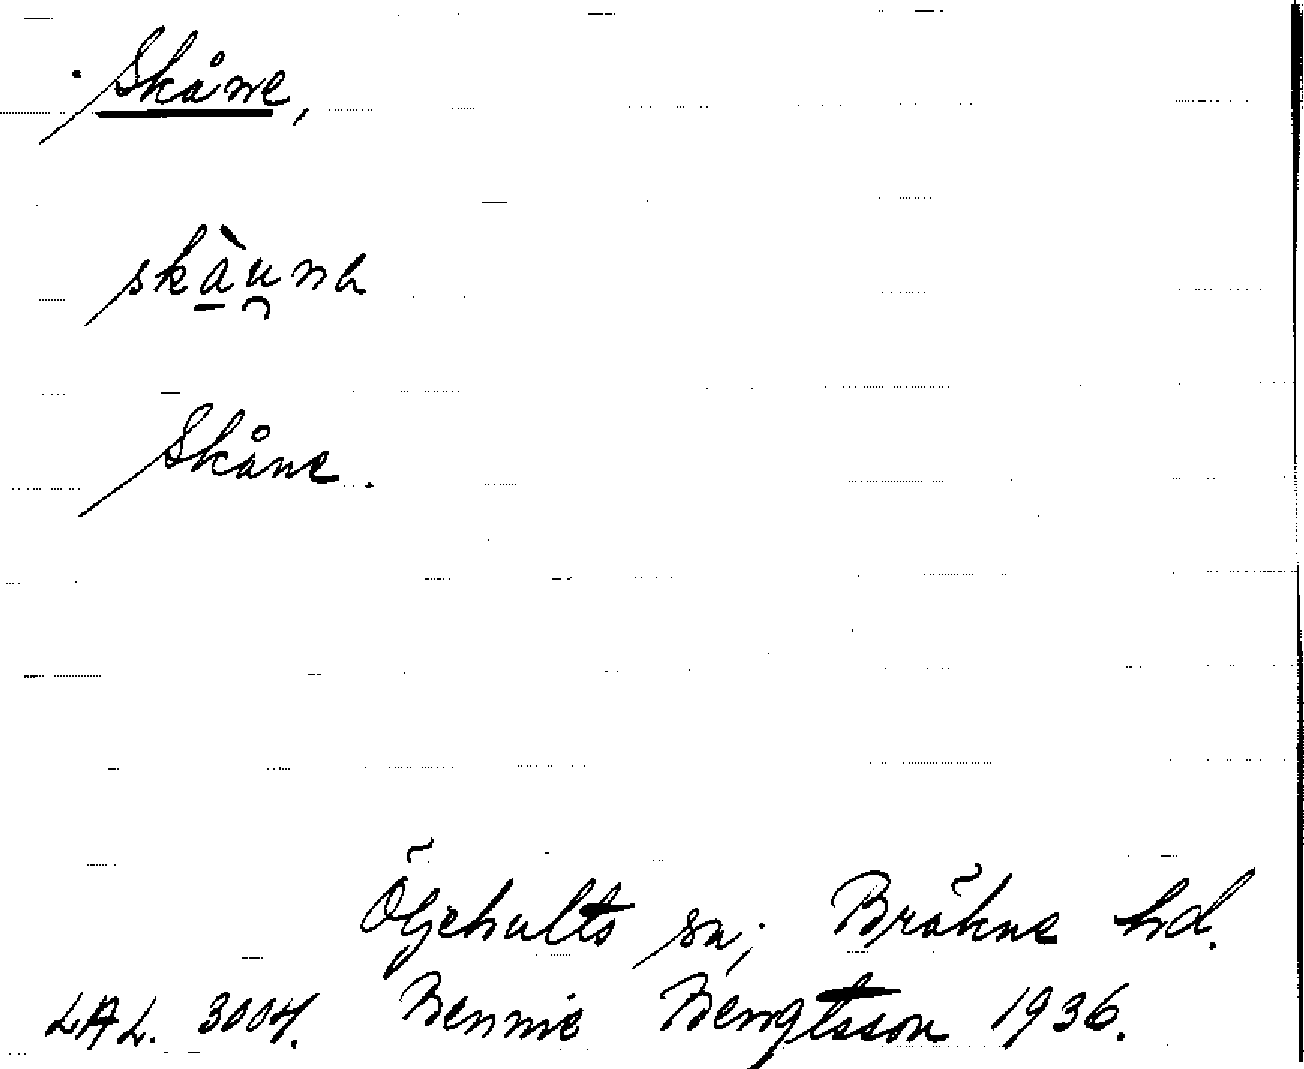 Skåne,
skàu̯nə
Skåne.
Öljehults sn; Bräkne hd.
LAL. 3004. Bennie Bengtsson 1936.